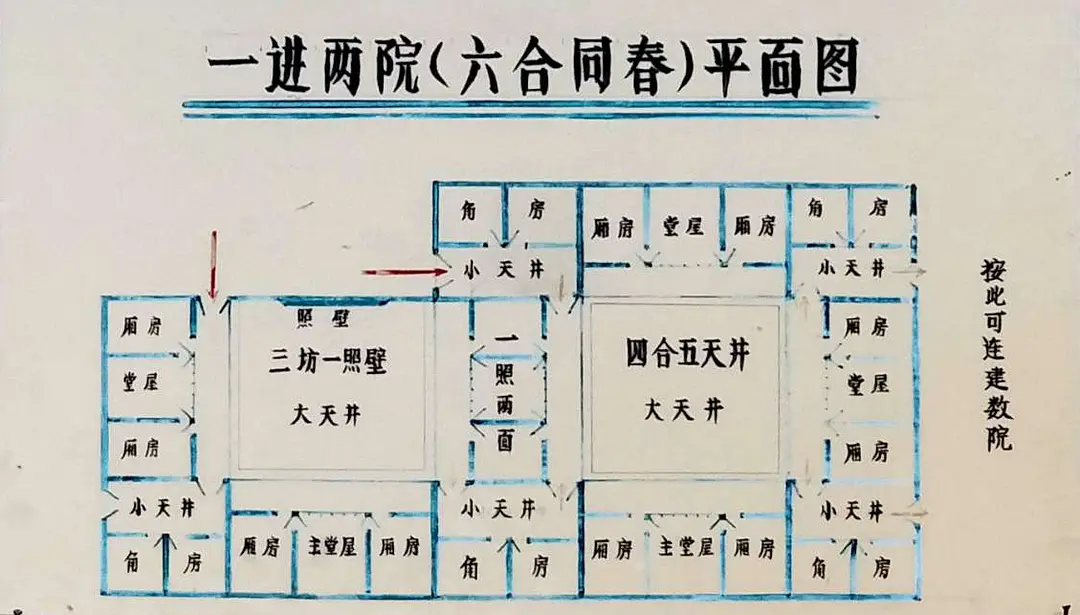 一进两院(六合同春)平面图
角 房
厢房 堂屋 厢房
角 房
小天井
小天井
厢房
堂屋
厢房
照壁
三坊一照壁
大天井
一照两面
四合五天井
大天井
厢房
堂屋
厢房
小天井
小天井
小天井
角 房
厢房 主堂屋 厢房
角 房
厢房 主堂屋 厢房
角 房
按此可连建数院